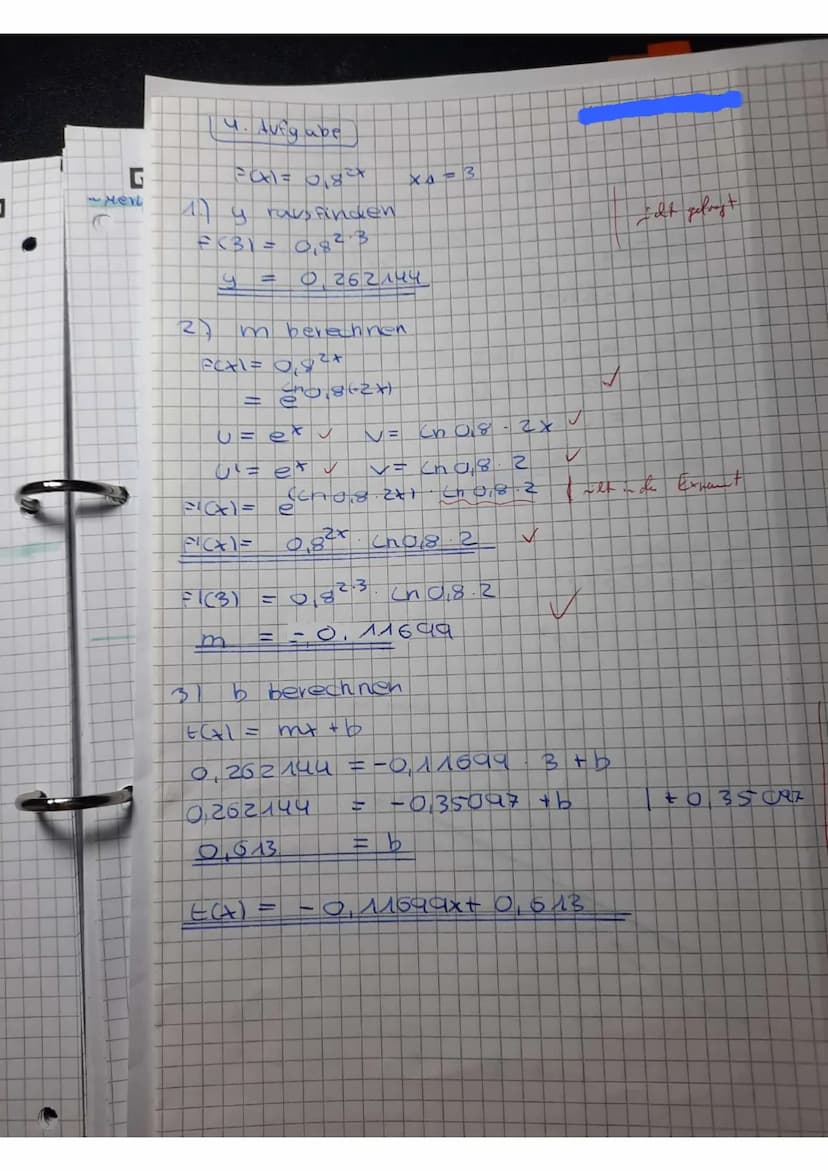 4. Aufgabe
f(x) = 0,8^2x x1 = 3
1.) y rausfinden
f(3) = 0,8^2·3
y = 0,262144
nicht gefragt
2.) m berechnen
f(x) = 0,8^2x
= e^ln0,8(·2x) ✓
u = e^x ✓ v = ln 0,8 · 2x ✓
u' = e^x ✓ v = ln 0,8 · 2 ✓
f'(x) = e^(ln 0,8 · 2x) · ln 0,8 · 2
f'(x) = 0,8^2x · ln 0,8 · 2 ✓
f'(3) = 0,8^2·3 · ln 0,8 · 2
m = -0,11699 ✓
3) b berechnen
t(x) = mx + b
0,262144 = -0,11699 · 3 + b
0,262144 = -0,35097 + b | + 0,35097
0,613 = b
t(x) = -0,11699x + 0,613